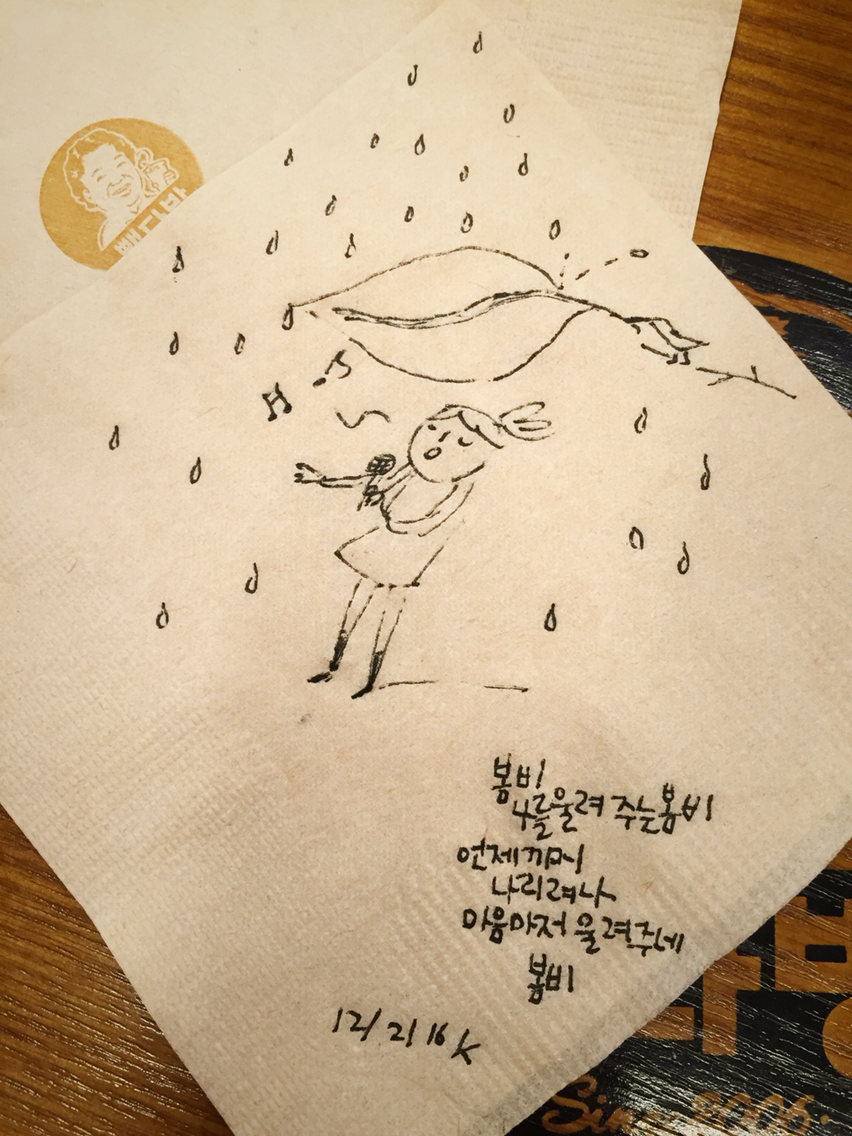 빽다방
봄비
나를울려 주는봄비
언제까지
나리려나
마음마저 울려주네
봄비
12/ 2/ 16 K
Since 2006.